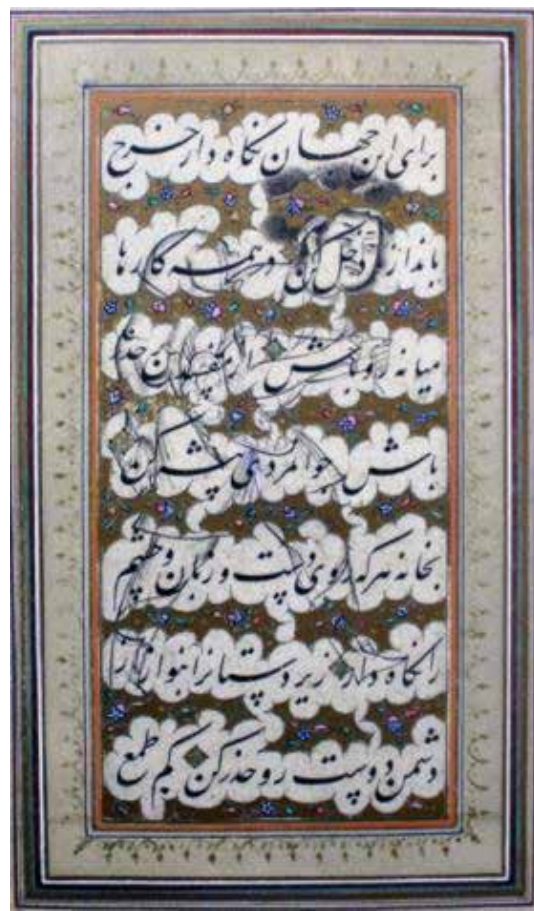 برای این جهان نگاه دار خرج
باندازه دخل کن در همه کارها
میانه رو باش از مفسدین حذر
باش جوانمردی پیشه کن
بخانه هر که روی دست و زبان و چشم
را نگاه دار زیر دستانرا بنواز از
دشمن دوست رو حذر کن کم طمع